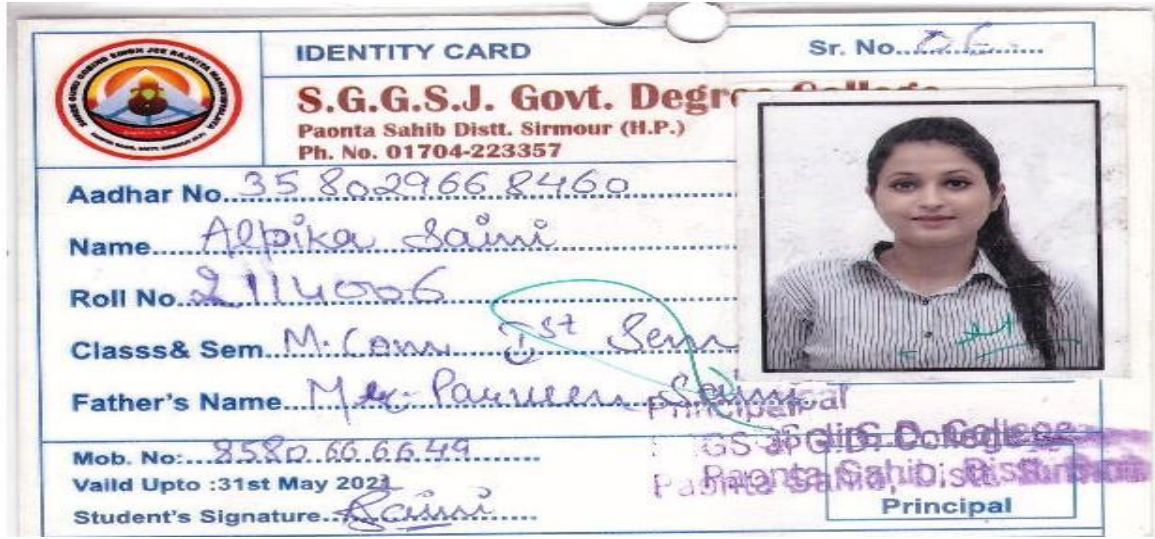 IDENTITY CARD
Sr. No.
S.G.G.S.J. Govt. Degree College
Paonta Sahib Distt. Sirmour (H.P.)
Ph. No. 01704-223357
Aadhar No. 358029668460
Name Alpika Saini
Roll No. 2114006
Classs& Sem. M.Com Ist Sem
Father's Name Mr. Parveen Saini
Mob. No: 8580666649
Vaild Upto :31st May 2021
Student's Signature Saini
Principal
Paonta Sahib, Distt.
Principal